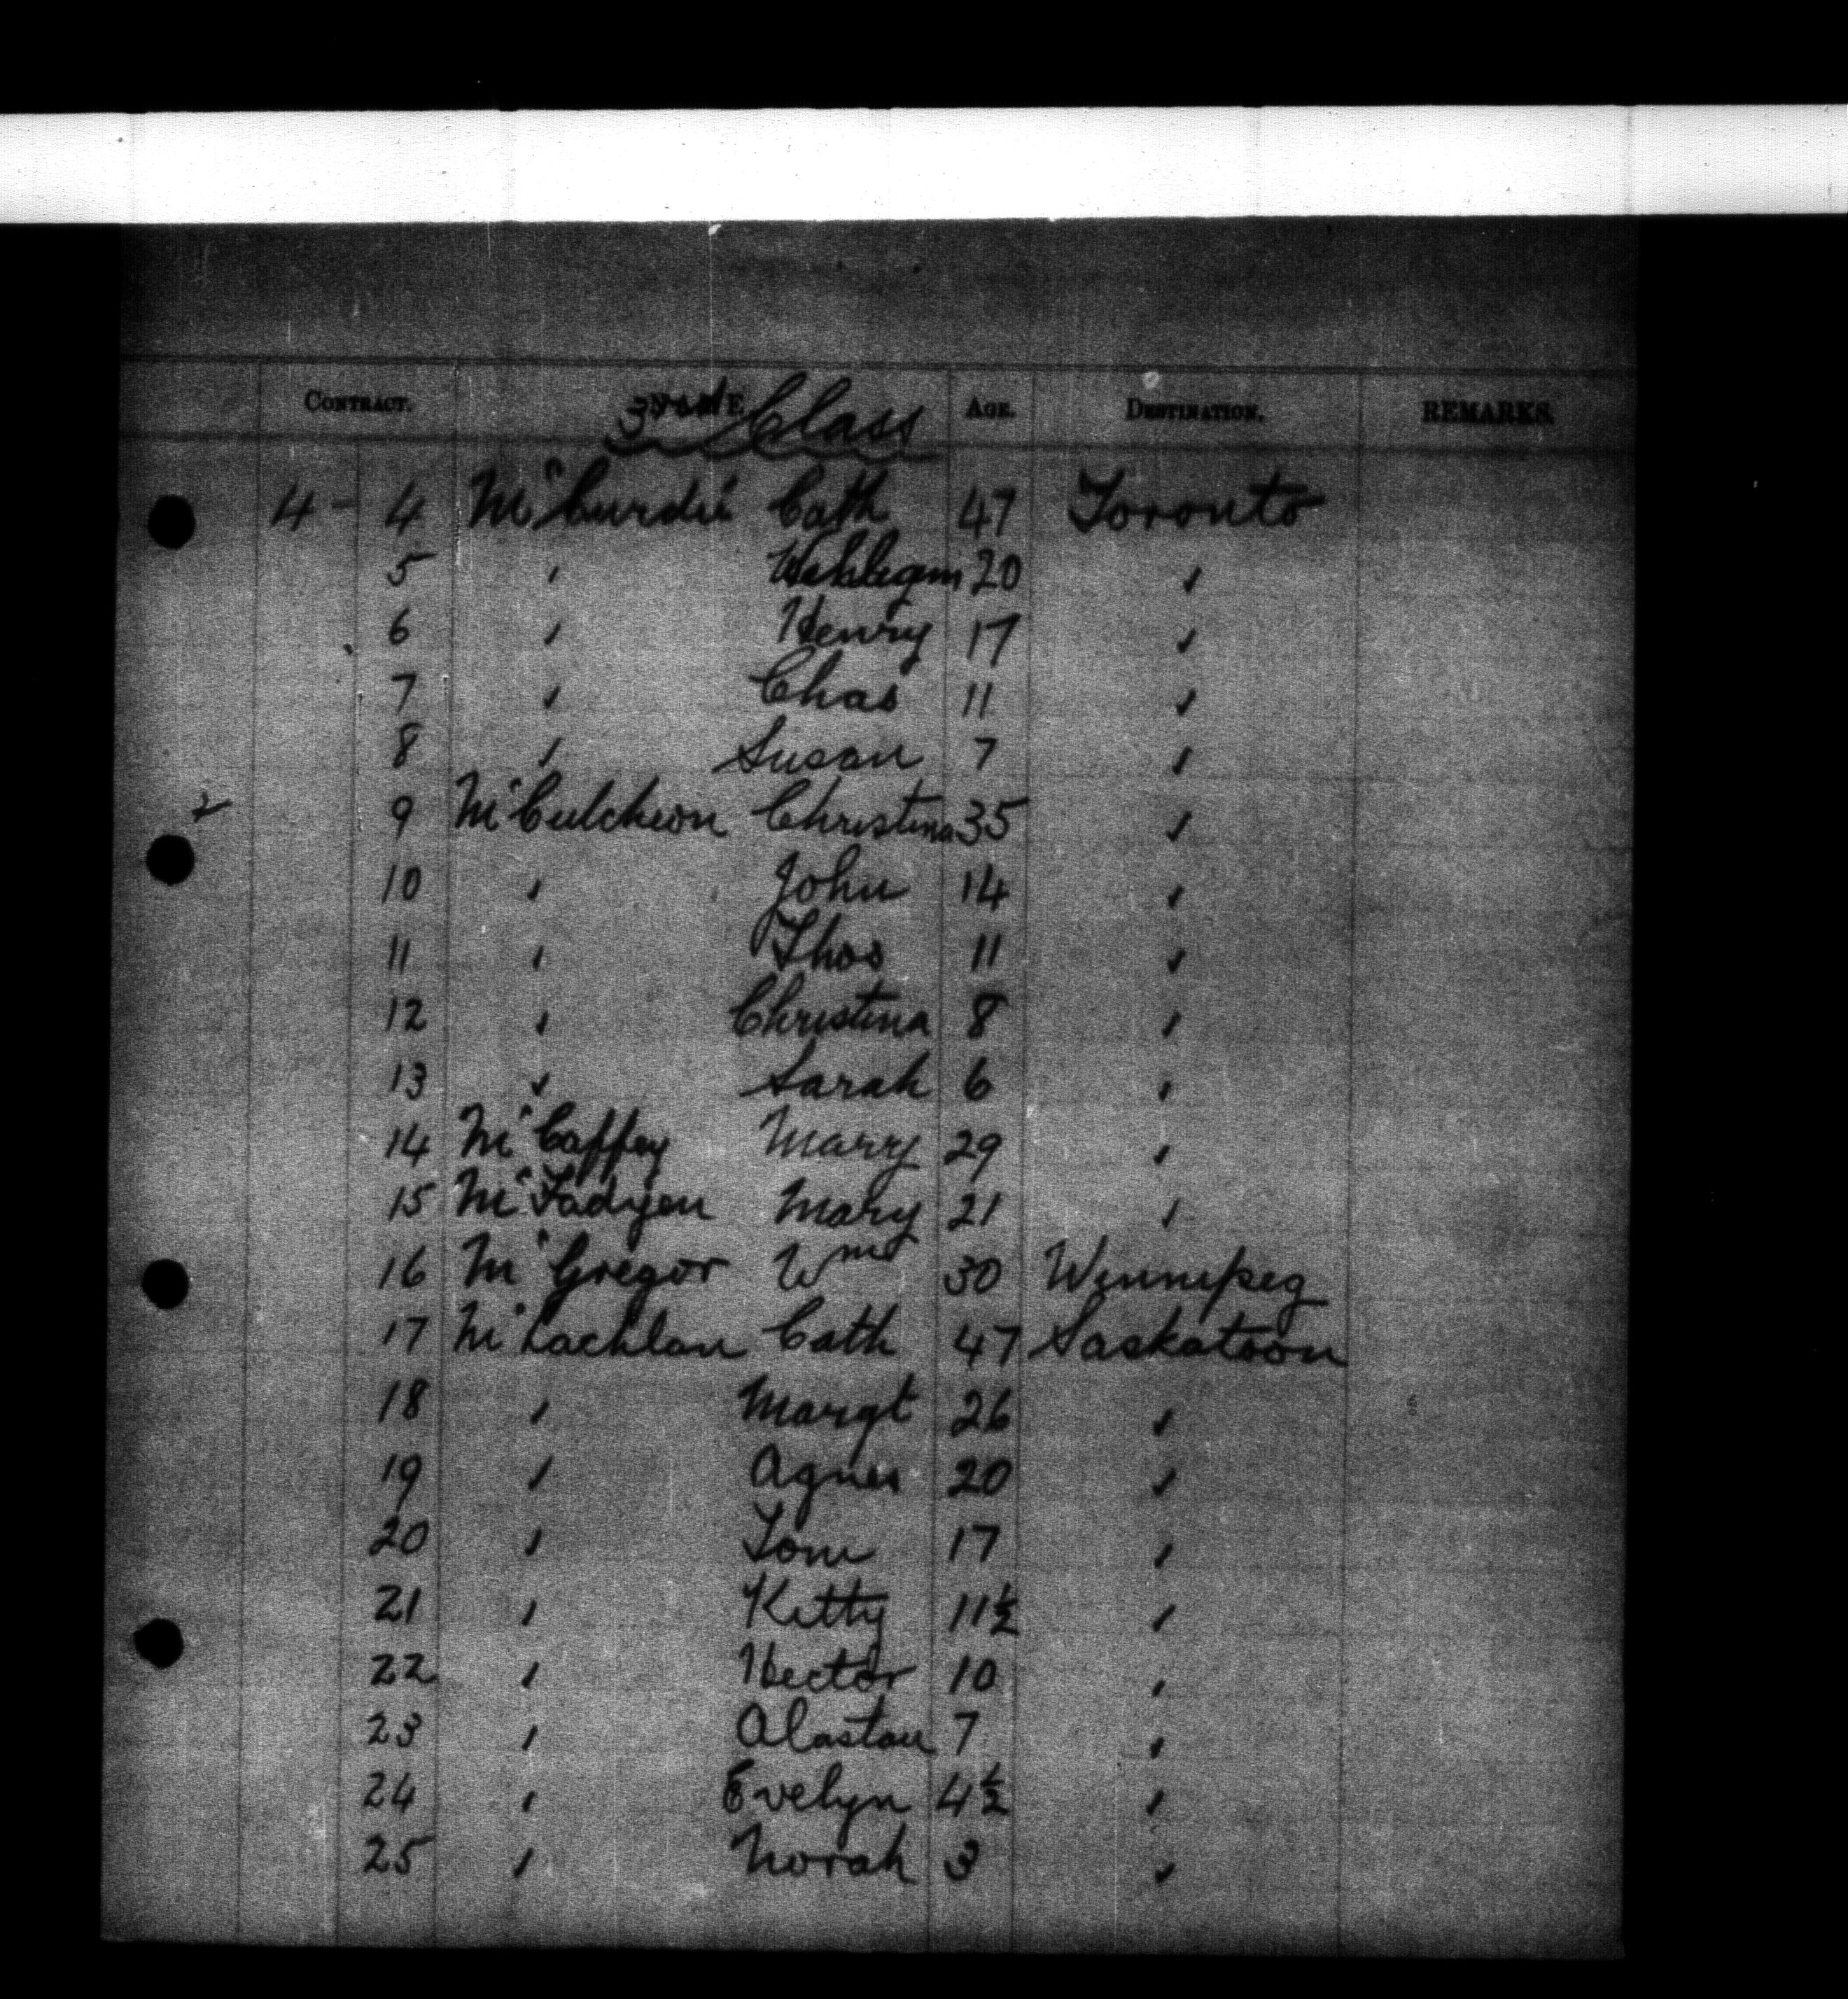 CONTRACT. NAME AGE. DESTINATION. REMARKS.
3rd Class
4 - 4 McCurdie Cath 47 Toronto
5 " 20 "
6 " Henry 17 "
7 " Chas 11 "
8 " Susan 7 "
9 McCutcheon Christina 35 "
10 " John 14 "
11 " Thos 11 "
12 " Christina 8 "
13 " Sarah 6 "
14 McCaffey Mary 29 "
15 McFadyen Mary 21 "
16 McGregor Wm 30 Winnipeg
17 McLachlan Cath 47 Saskatoon
18 " Margt 26 "
19 " Agnes 20 "
20 " Tom 17 "
21 " Kitty 11½ "
22 " Hector 10 "
23 " Alastau 7 "
24 " Evelyn 4½ "
25 " Norah 3 "